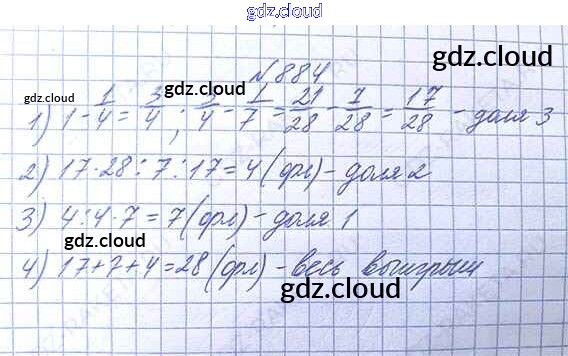 gdz.cloud
gdz.cloud
№884
gdz.cloud
1) 1 - 1/4 = 3/4 ; 3/4 - 1/7 = 21/28 - 7/28 = 17/28 - доля 3
2) 17·28:7:17=4(фл)-доля 2
3) 4:4·7=7(фл)-доля 1
gdz.cloud
4) 17+7+4=28(фл)-весь выигрыш
gdz.cloud